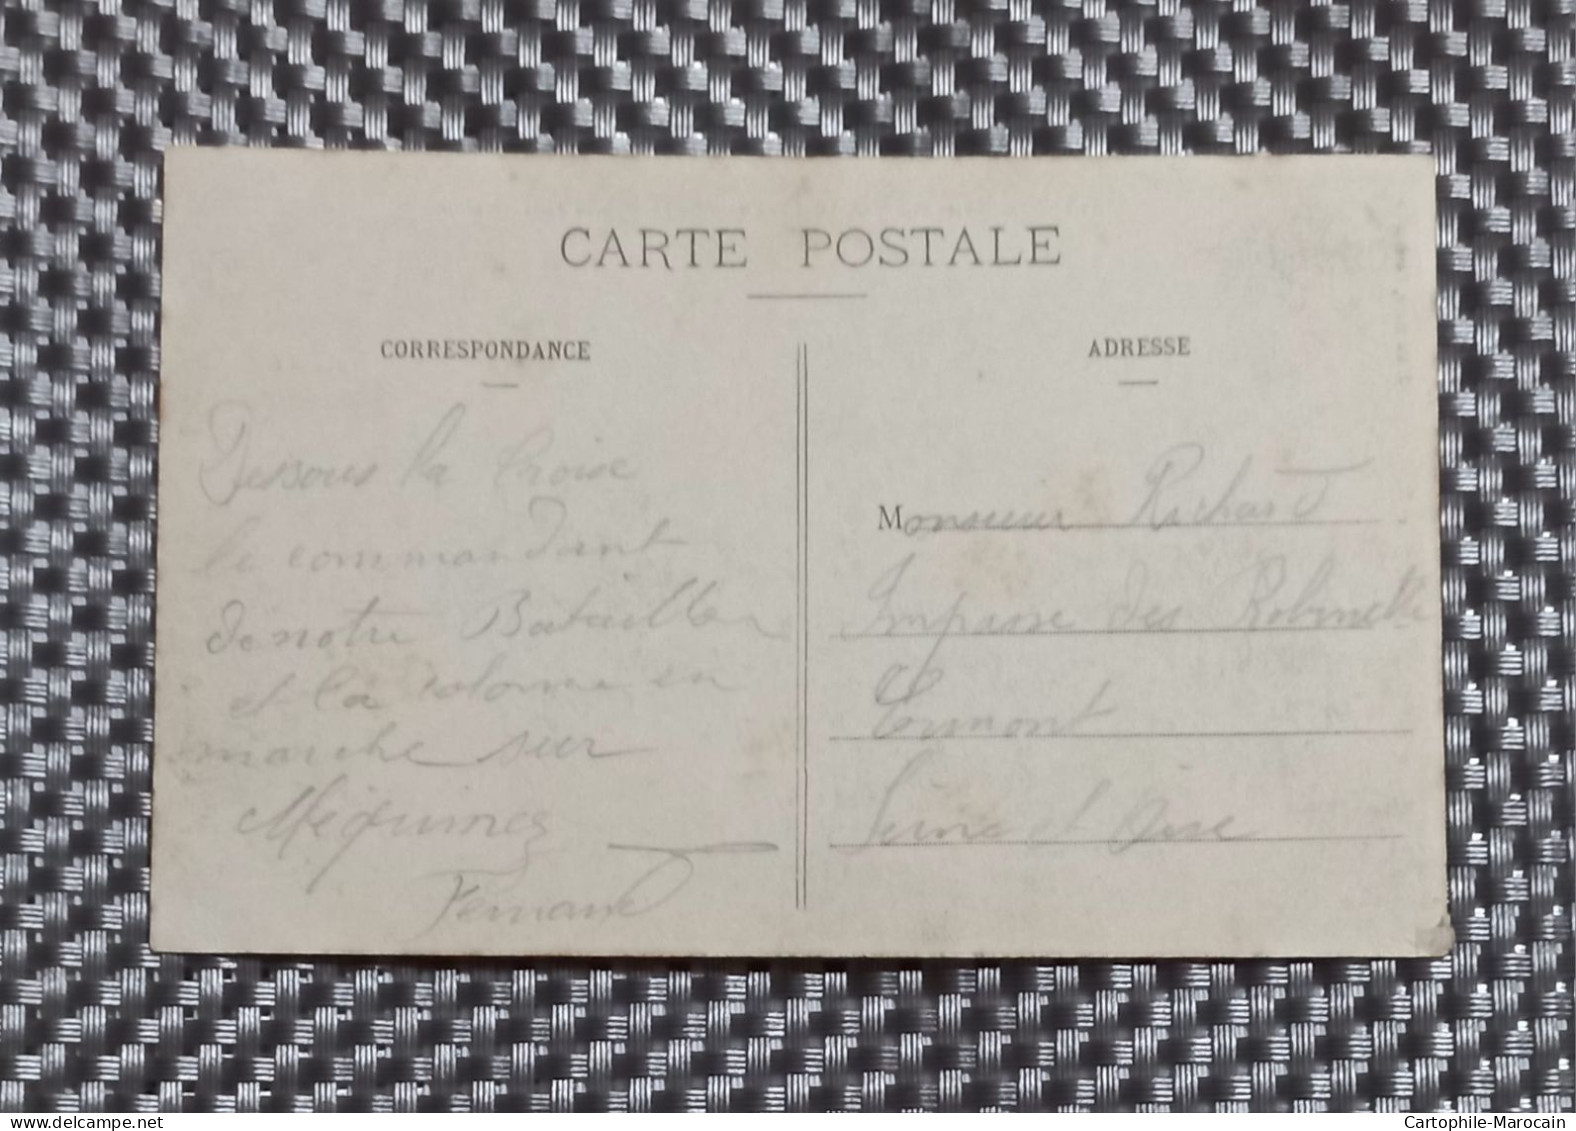 CARTE POSTALE
CORRESPONDANCE
Dessous la Croix
le commandant
de notre Bataillon
et la colonne en
marche sur
Mequinez
Fernand
ADRESSE
Monsieur Richard
Impasse des Robinette
Ermont
Seine et Oise
Cartophile-Marocain